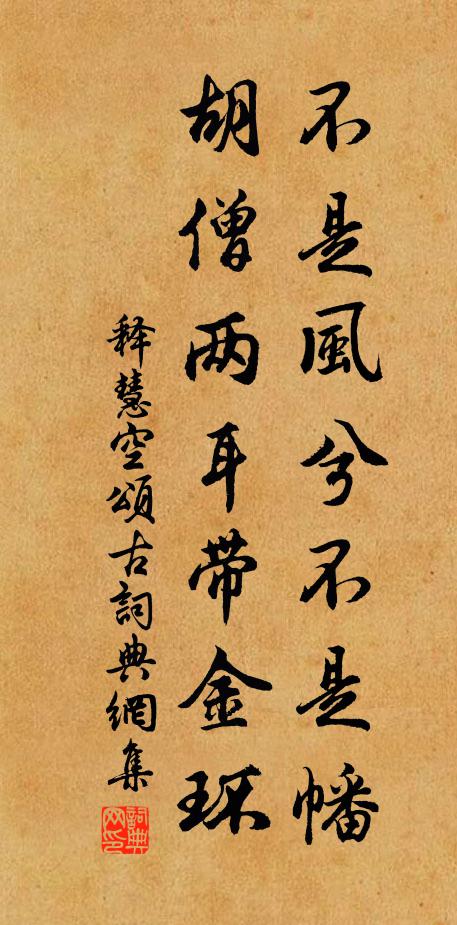 不是風兮不是幡
胡僧两耳帶金环
释慧空頌古詞典網集
詞典網印